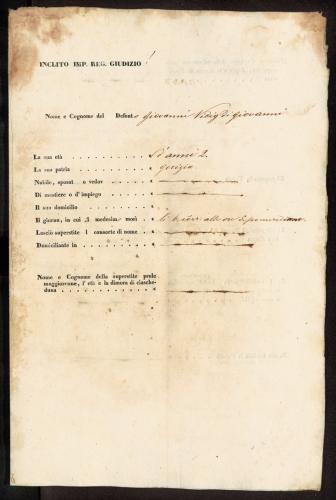 INCLITO IMP. REG. GIUDIZIO
Nome e Cognome del Defunto Giovanni di Giovanni
La sua età D'anni 2.
La sua patria Gorizia
Nubile, spos o vedov
Di mestiere o d'impiego
Il suo domicilio
Il giorno, in cui medesim morì li 6 corr. alle ore
Lasciò superstite consorte di nome
Domiciliante in
Nome e Cognome della superstite prole
maggiorenne, l'età e la dimora di ciasche-
duna